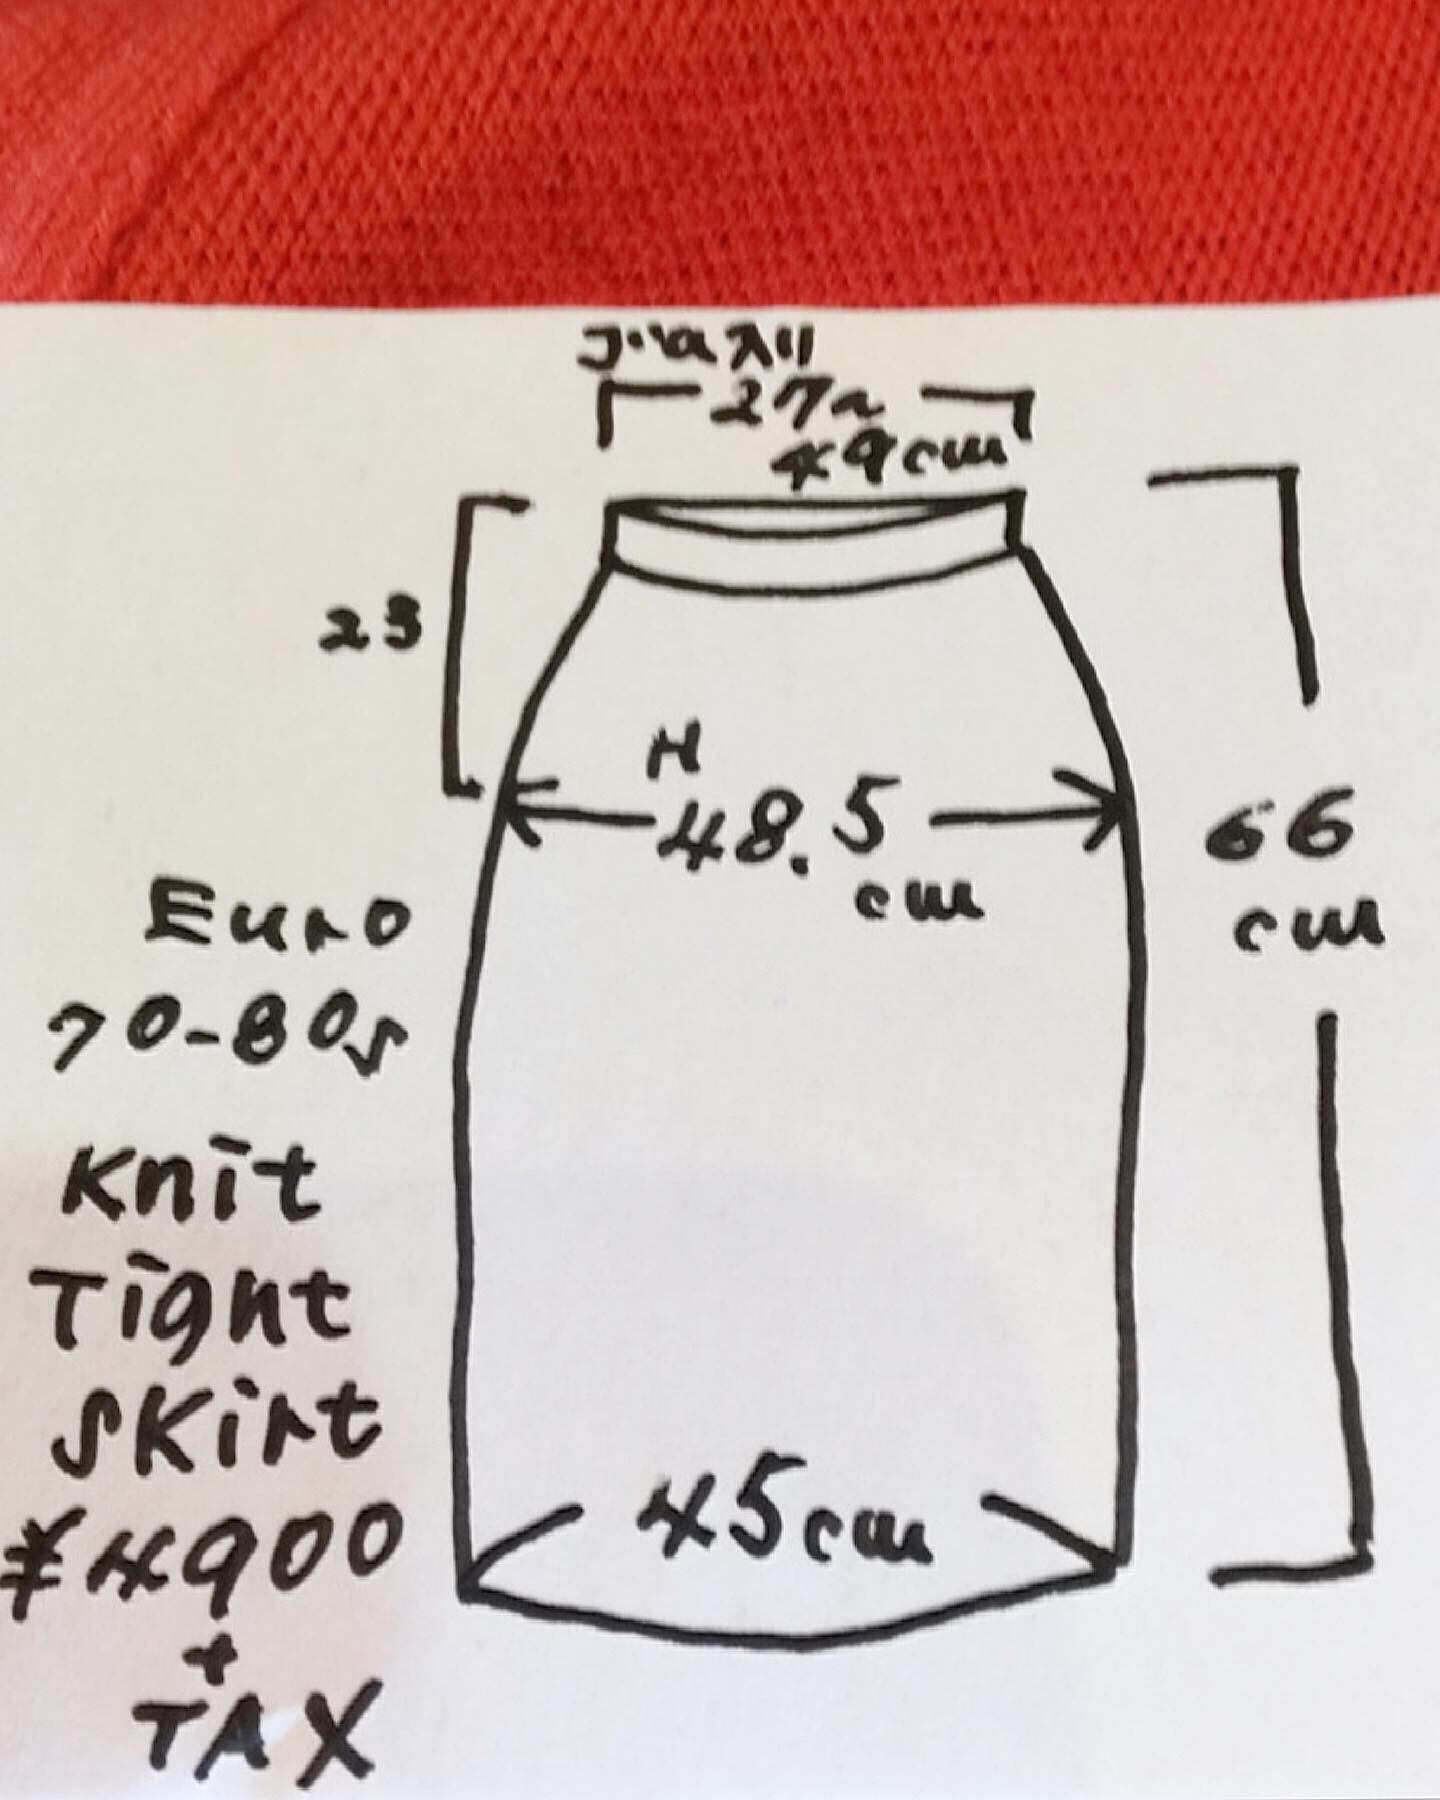 ゴム入り
27~
49cm
23
H
48.5
cm
66
cm
Euro
70-80s
Knit
Tight
Skirt
¥4900
+
TAX
45cm